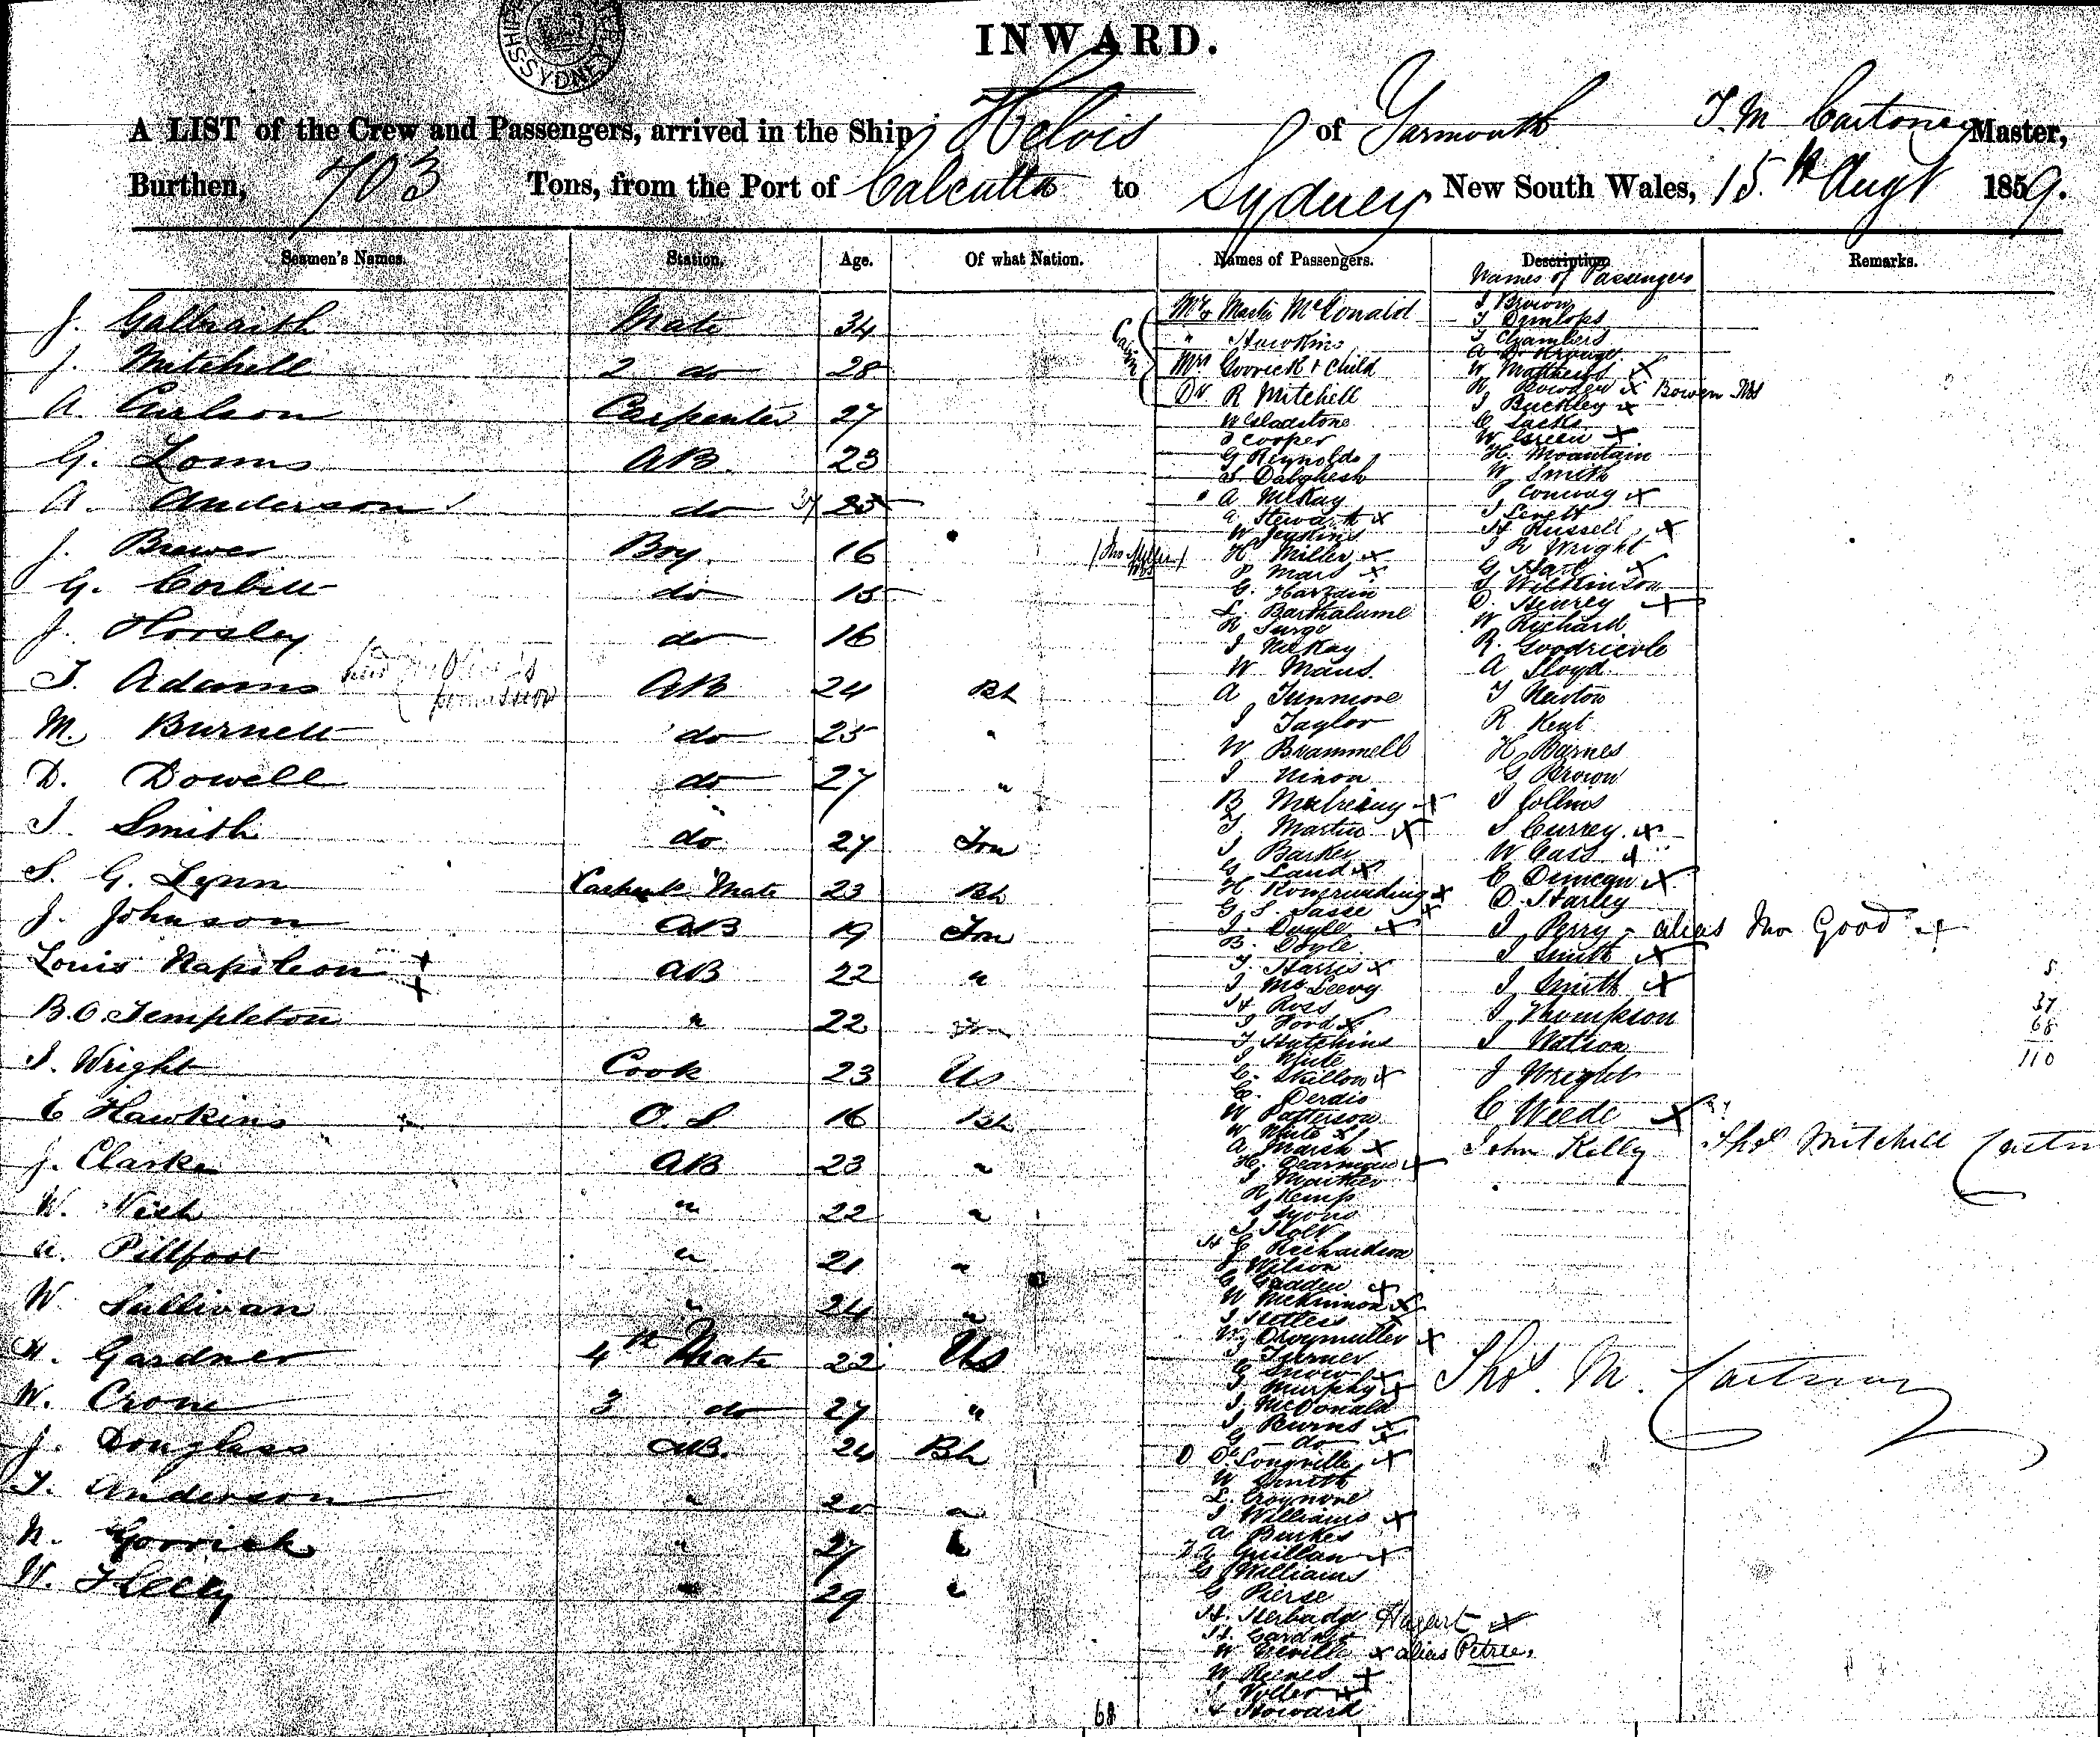 SHIPP
SYDNEY
INWARD.
A LIST of the Crew and Passengers, arrived in the Ship Helois of Yarmouth T. M Cartney Master,
Burthen, 703 Tons, from the Port of Calcutta to Sydney New South Wales, 15th Augt 1859.
Seamen's Names. Station. Age. Of what Nation. Names of Passengers. Description Remarks.
Names of Passengers
J. Galbraith Mate 34
J. Mitchell 2 do 28
A. Carlson Carpenter 27
G. Lomus AB 23
A. Anderson do 25
J. Brewer Boy 16
G. Corbitt do 15
J. Horsley do 16
T. Adams AB 24 Bh
M. Burnett do 25 "
D. Dowell do 27 "
J. Smith do 27 Fon
S. G. Lynn Mate 23 Bh
J. Johnson AB 19 Fon
Louis Napoleon AB 22 "
B. O. Templeton " 22 Fon
J. Wright Cook 23 Us
C Hawkins O. S 16 Bh
J. Clarke AB 23 "
W. Nish " 22 "
A. Pillfoot " 21 "
W. Sullivan " 24 "
H. Gardner 4th Mate 22 Us
W. Crone 3 do 27 "
J. Douglass AB. 24 Bh
T. Anderson " 20 "
N. Gorrick " 27 "
W. " 29 "
Cabin
Mr & Master McDonald
" Hawkins
Mrs Gorrick & Child
Dr R Mitchell
W Gladstone
J Cooper
G Reynolds
S Dalghesh
A McKay
A Stewart x
W Jenkins
H Miller x
P Mars x
G. Harzain
L. Barthalume
R Surge
J McKay
W Maus
A Tunmore
J Taylor
W Brammell
J Nixon
B x
T Martin x
J Barker
G Laud x
H x
G. S. Sasse x
J. Doyle x
B. Doyle
T. Harris x
J McLeevy
H Ross
J Ford x
T Hutchins
J White
C. Skillow x
C. Derdis
W Patterson
W White x
A Marsh x
H. x
J
R Kemp
S Lyons
J Holt
H E Richardson
J Wilson
C Gradden x
W McKinnon x
J
W x
J Turner
C Snow
J Murphy x
J McDonald
J Burns x
G do x
D DeLongville x
W Smith
L.
J Williams x
A Burkes
J A Guillan x
G Williams
G Pierse
H. Herbadge Hagart x
H. Gardner
W Neville x alias Petrie.
W x
J Voller x
H Howard
68
J Brown
T Dunlops
T Chambers
W Matthews x
R Bowden x Bowen Mrs
J Buckley x
C Sacks
W Green x
H. Mountain
W Smith
P Conway x
J Levett
H Russell x
J R Wright
G Hart x
J Wilkinson
D. Henrey x
W Richard
R. Goodricole
A Lloyd
T Newton
R. Kent
H Barnes
G Brown
J Collins
J Currey x
W Cass x
C Duncan x
D. Harley
J Perry - alias Jno Good x
J Smith x
J Smith x
J Thompson
J Watson
J Wright
C Weede x
John Kelly
Thos Mitchell
5
37
68
110
Thos. M. Cartney